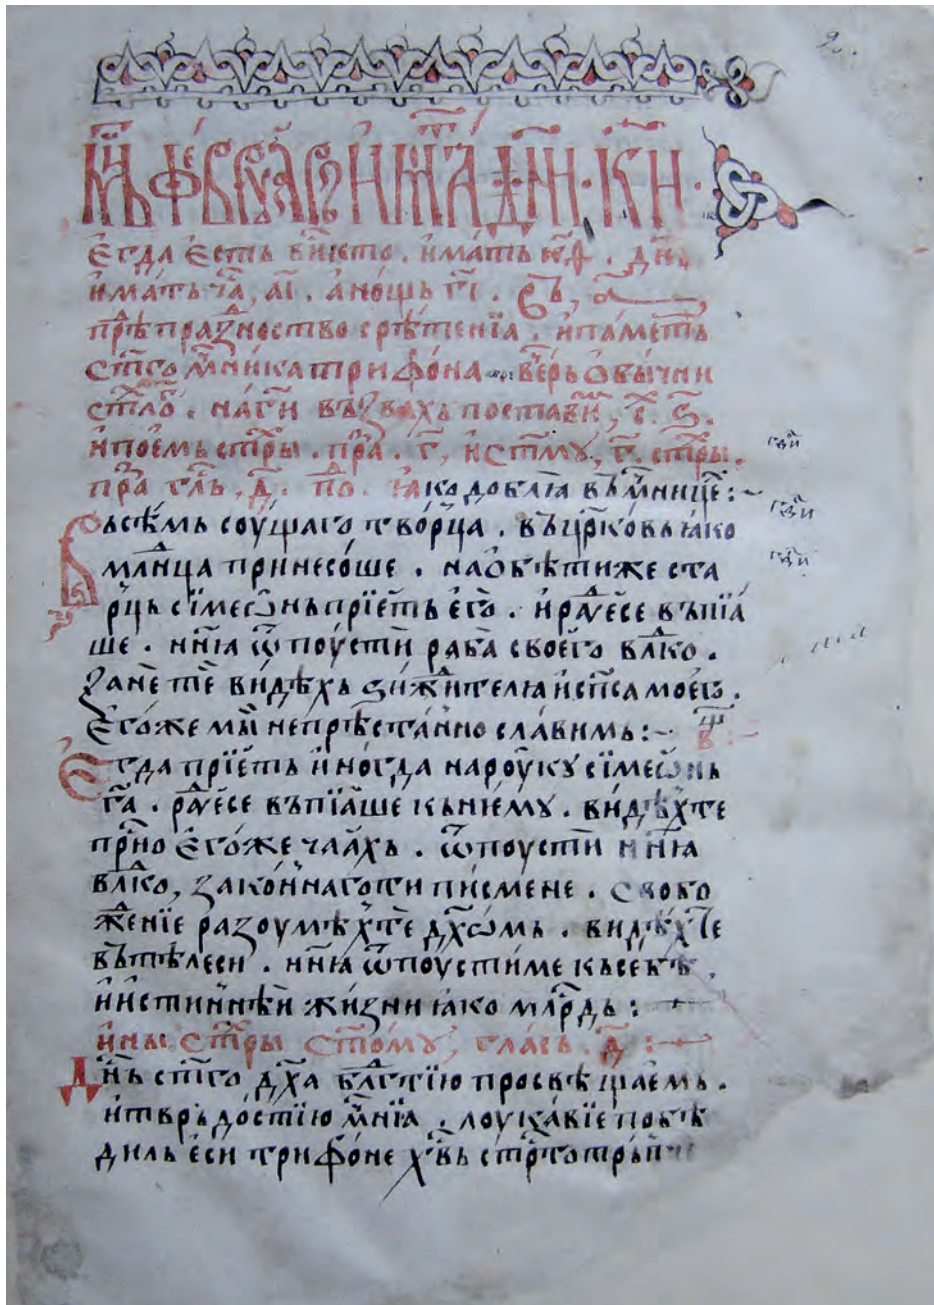 мⷭ҇ць феврꙋарїи имать дн҃и · к҃и ·
егда естъ висекто . иматъ к҃ѳ . дн҃и
иматъ ча , а҃і . а нощь г҃і . въ , а҃
прѣⷣпразⷣньство срѣтенїа . и паметь
ст҃го мч҃ника трифона веⷱ҇рь ѡбычни
стл҃ѡⷡ . на г҃и възвахь поставиⷨ , ст҃ . ѕ҃ .
и поемь стⷯры . праⷥ . г҃ , и ст҃мꙋ , г҃ . стⷯры .
праⷥ глⷭ҇ь . д҃ . поⷣ . ꙗко доблꙗ въ мч҃ницеⷯ :~
Вьсѣмь соущаго творца . въ цр҃ковь ꙗко
млⷣнца принесоше . на обѣтиже ста
рць сїмеѡнь прїеть его . и раⷣꙋесе въпїа
ше . нн҃ꙗ ѿпоусти раба своего влⷣко .
Зане те видѣхь зижⷣителꙗ и сп҃са моего .
Егоже мы непрѣстанно славимь :~ в҃ :~
Егда прїеть иногда на роукꙋ сїмеѡнь
га҃ . раⷣꙋесе въпїаше кь нѥмꙋ . видѣхте
прⷭ҇но егоже чаахь . ѿпоусти нн҃ꙗ
влⷣко , законнаго ти писмене . свобо
жⷣенїе разоумѣхте дх҃ѡмь . видѣхте
въ тѣлеси . нн҃ꙗ ѿпоустиме кь себѣ ,
и истиннѣи жизни ꙗко млⷭ҇рдь :
ины стⷯры ст҃омꙋ , глась . д҃ :~
Дн҃ь ст҃го дх҃а блгⷣтїю просвѣщаемь .
и тврьдостїю мч҃нїа . лоукавїе побѣ
диль еси трифоне хв҃ь стрⷭ҇тотрьпче